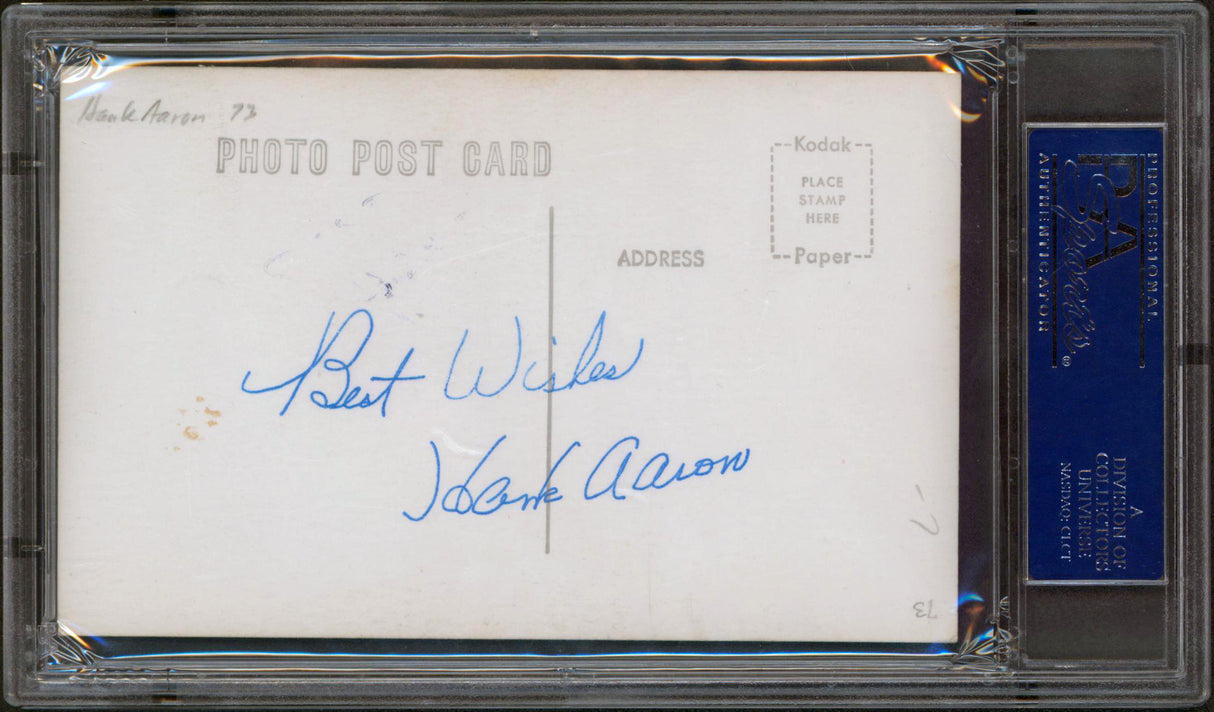 Hank Aaron 73
PHOTO POST CARD
Kodak
PLACE
STAMP
HERE
Paper
ADDRESS
Best Wishes
Hank Aaron
-7
73
PROFESSIONAL
PSA
AUTHENTICATOR
A
DIVISION OF
COLLECTORS
UNIVERSE
NASDAQ: CLCT